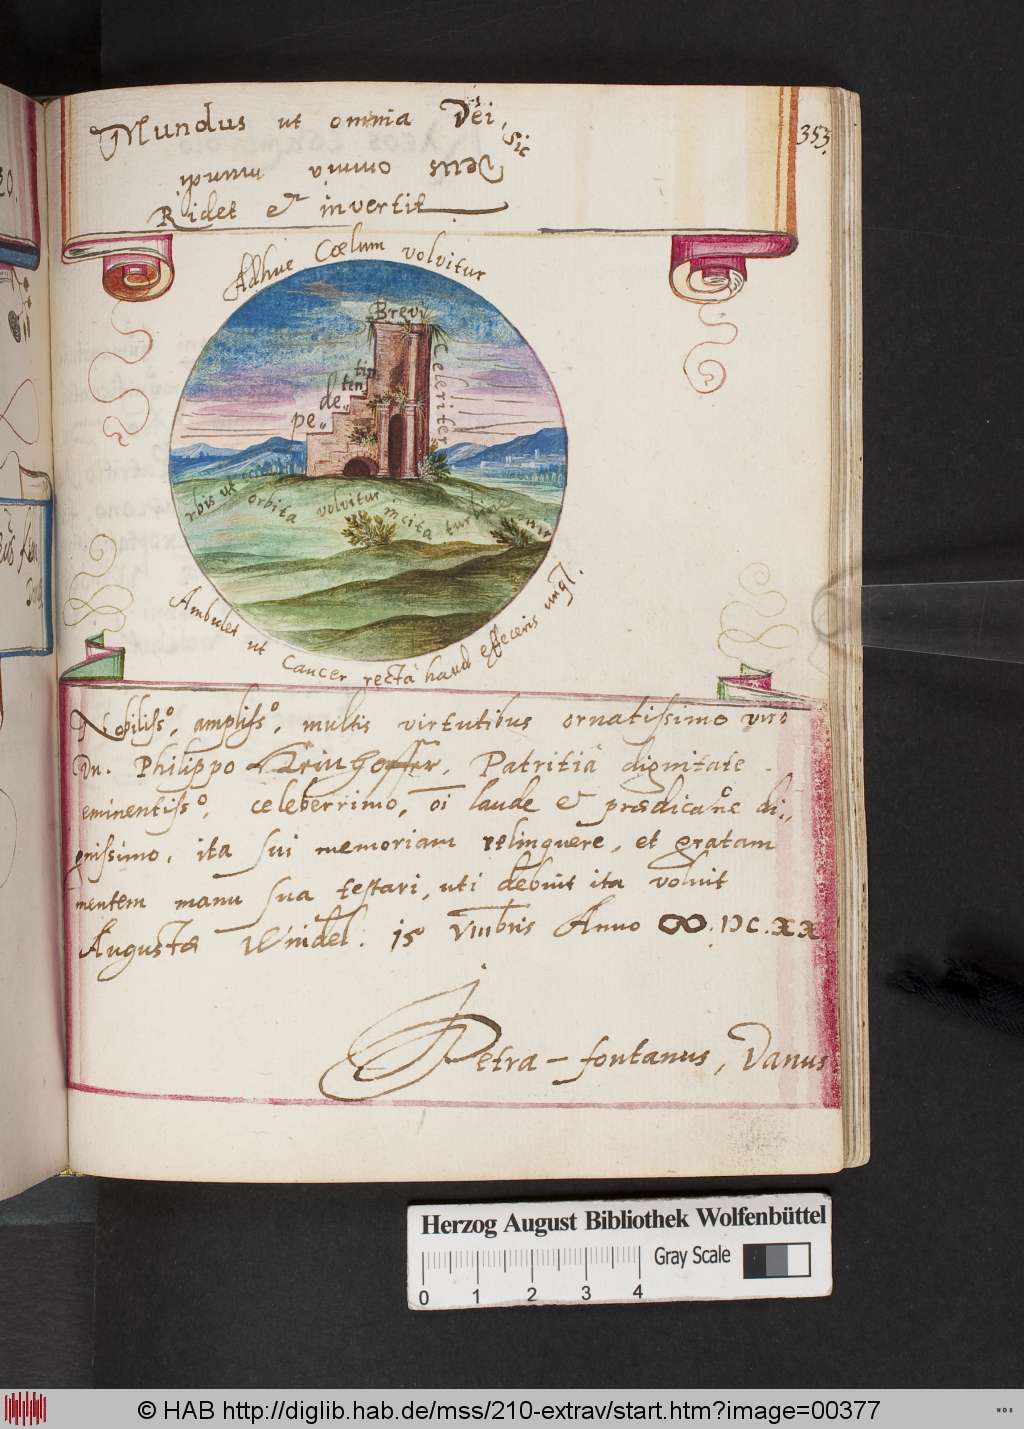 353.
Mundus ut omnia Dei,
Sic
Deus omnia mundi
Ridet et invertit
Adhuc Cœlum volvitur
Brevi
Celeriter
ten„
de„
pe„
rbis ut
orbita volvitur incita turbine
Ambulet ut Cancer recta haud effeceris unqꝫ.
Nobilissº, amplissº, multis virtutibus ornatissimo viro
Dn. Philippo Hainhoffer, Patritiâ dignitate
eminentissº, celeberrimo, oī laude et prædicaōne di„
gnissimo, ita sui memoriam relinquere, et gratam
mentem manu sua testari, uti debuit ita voluit
Augustæ Vindel. 15 VIIIbris Anno ꝏ.DC.XX
Petra-fontanus, Danus
Herzog August Bibliothek Wolfenbüttel
Gray Scale
0 1 2 3 4
© HAB http://diglib.hab.de/mss/210-extrav/start.htm?image=00377